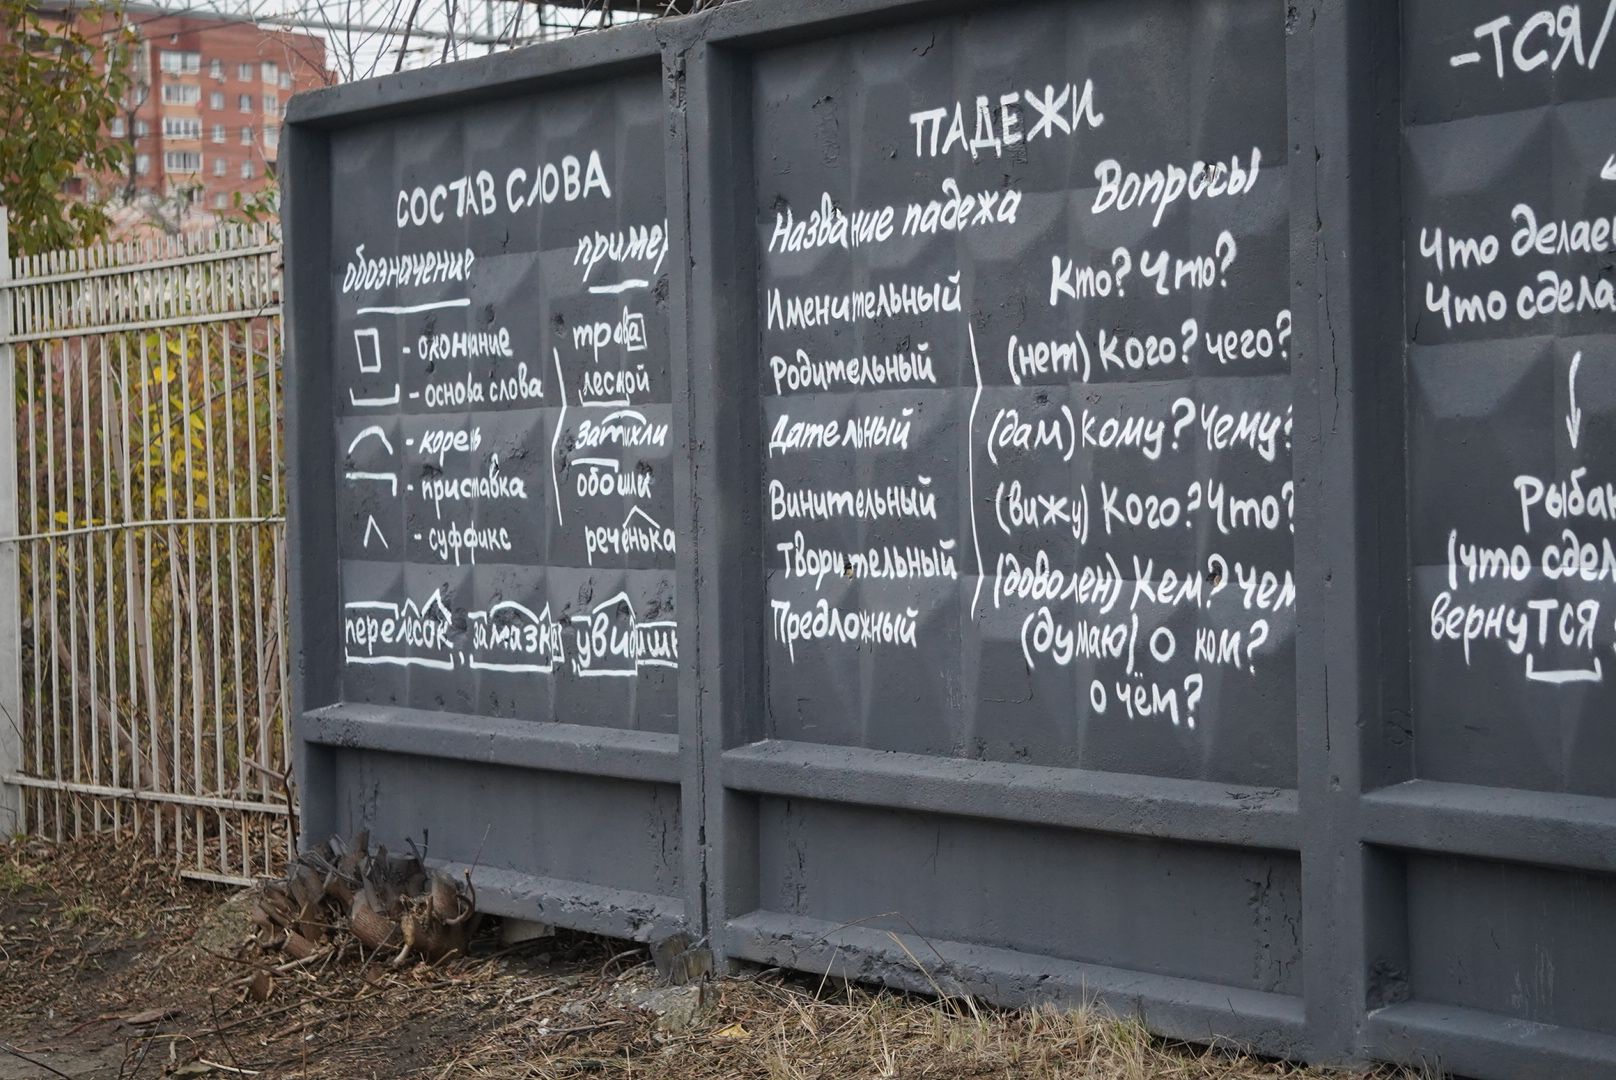 СОСТАВ СЛОВА
обозначение
- окончание
- основа слова
- корень
- приставка
- суффикс
трава
лесной
затихли
обошли
реченька
перелесок, замазка,
ПАДЕЖИ
Название падежа Вопросы
Именительный Кто? Что?
Родительный (нет) Кого? чего?
Дательный (дам) Кому? Чему?
Винительный (вижу) Кого? Что?
Творительный (доволен) Кем? Чем
Предложный (думаю) о ком?
о чём?
-ТСЯ/
Что делае
Что сдела
Рыба
(что сдел
вернутся